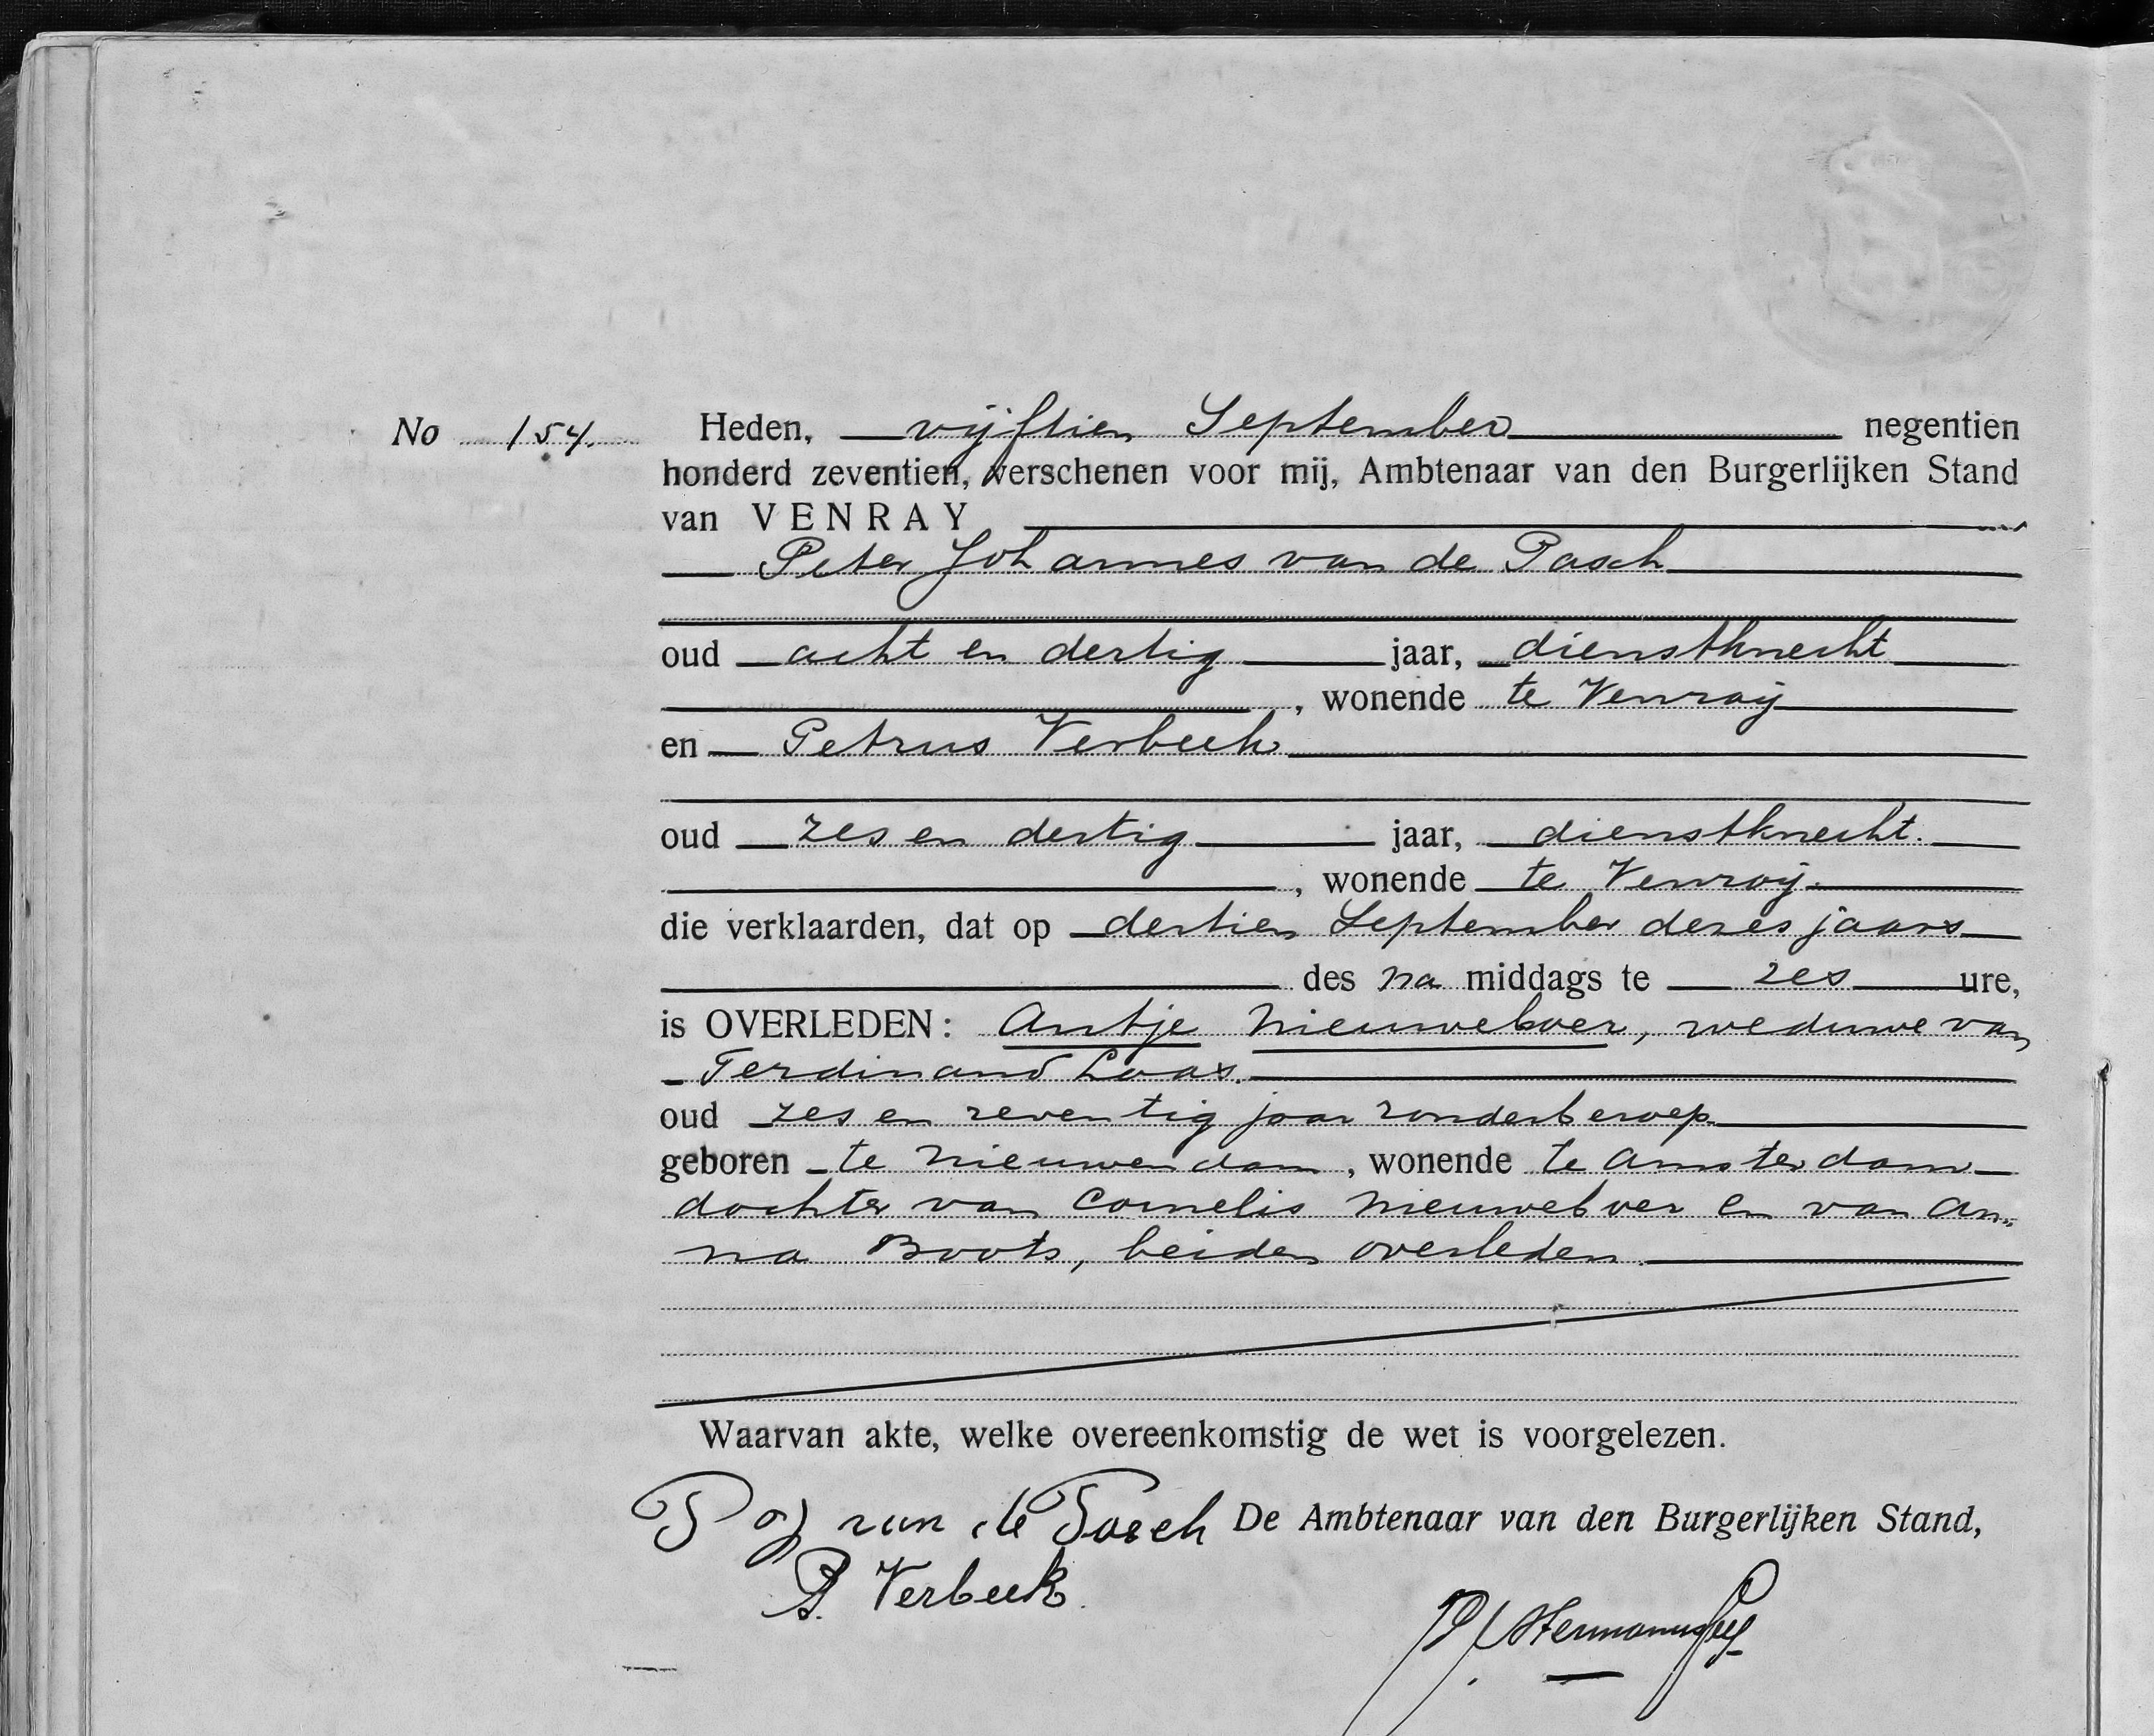 No 154. Heden, vijftien September negentien
honderd zeventien, verschenen voor mij, Ambtenaar van den Burgerlijken Stand
van VENRAY
Peter Johannes van de Pasch
oud acht en dertig jaar, dienstknecht
, wonende te Venray
en Petrus Verbeek
oud zes en dertig jaar, dienstknecht.
, wonende te Venray.
die verklaarden, dat op dertien September dezes jaars
des na middags te zes ure,
is OVERLEDEN: Antje Nieuweboer, weduwe van
Ferdinand Loas.
oud zes en zeventig jaar zonder beroep
geboren te Nieuwendam, wonende te Amsterdam
dochter van Cornelis Nieuweboer en van An-
na Boots, beiden overleden.
Waarvan akte, welke overeenkomstig de wet is voorgelezen.
P J van de Pasch De Ambtenaar van den Burgerlijken Stand,
P. Verbeek.